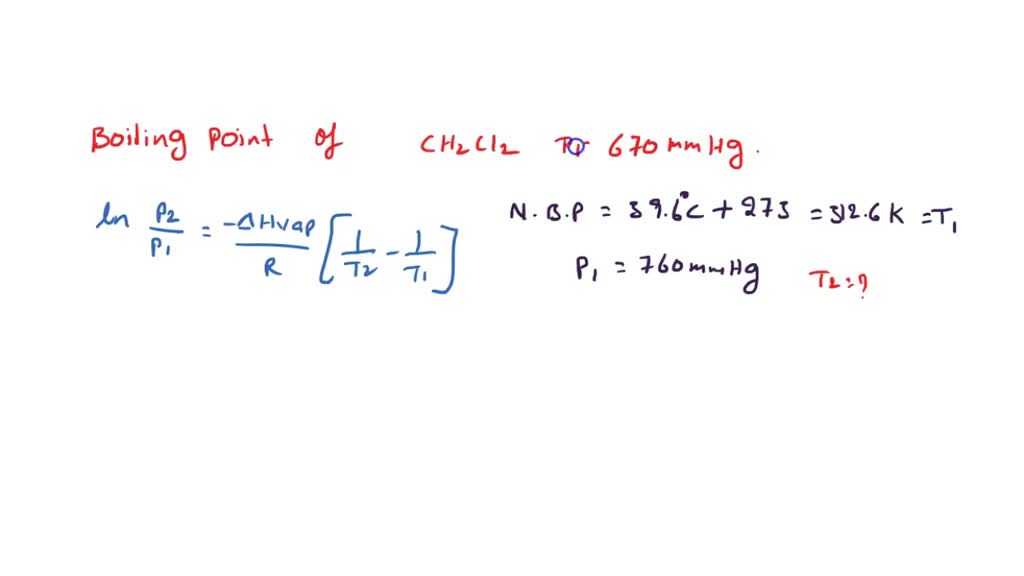 Boiling Point of CH2Cl2 670 mmHg.
ln P2/P1 = -ΔHvap/R [1/T2 - 1/T1]
N.B.P = 39.6°C + 273 = 312.6 K = T1
P1 = 760 mmHg
T2 = ?